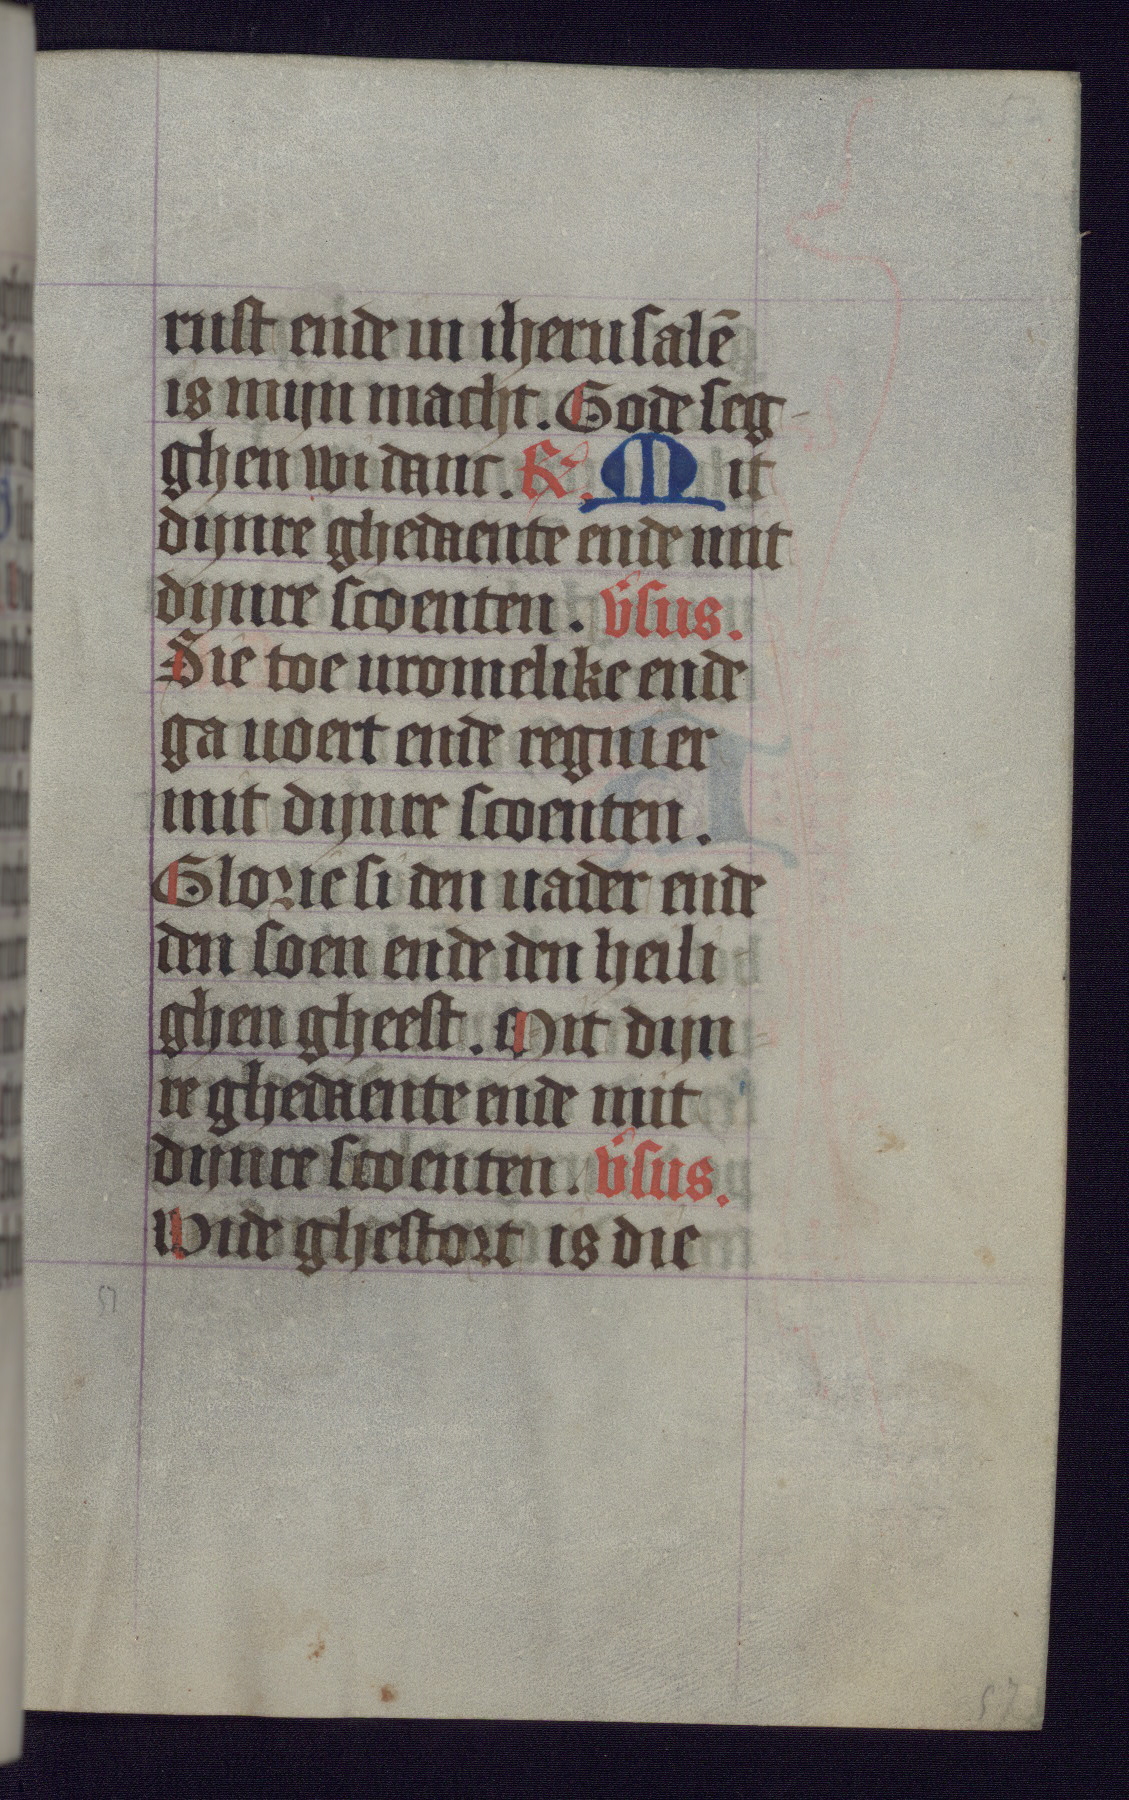 rust ende in iherusalē
is mijn macht. Gode seg-
ghen wi danc. R̷. Mit
dijnre ghedaente ende mit
dijnre scoenten. v̄sus.
Sie toe uromelike ende
ga uoert ende regnier
mit dijnre scoenten.
Glorie si den uader ende
den soen ende den heili
ghen gheest. Mit dijn
re ghedaente ende mit
dijnre scoenten. v̄sus.
Wide ghestort is die
57
57